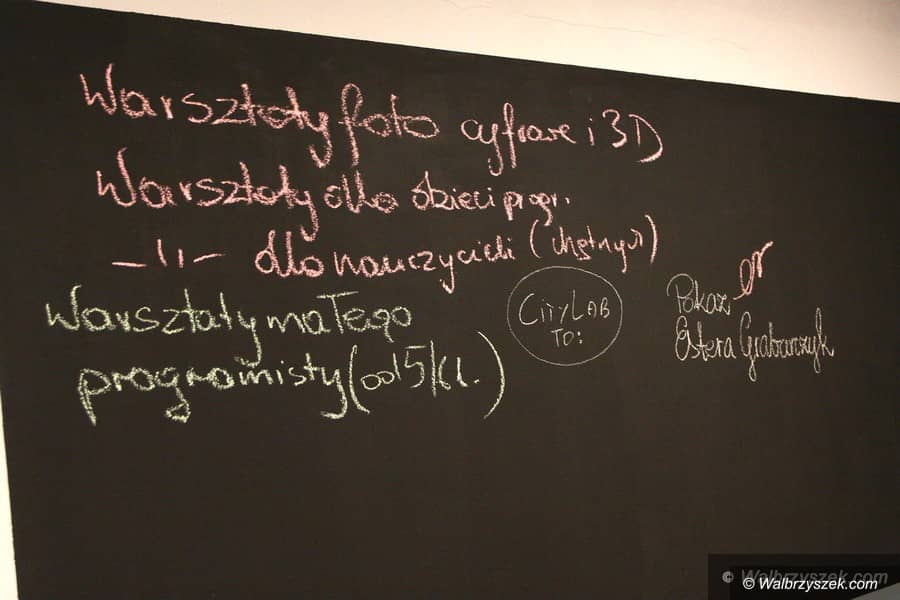 Warsztaty foto cyfrowe i 3D
Warsztaty dla dzieci progr.
-"- dla nauczycieli (chętnych)
Warsztaty małego
programisty (od 5 kl.)
CITYLAB
TO:
Pokaz
Estera Grabarczyk
© Walbrzyszek.com
© Walbrzyszek.com